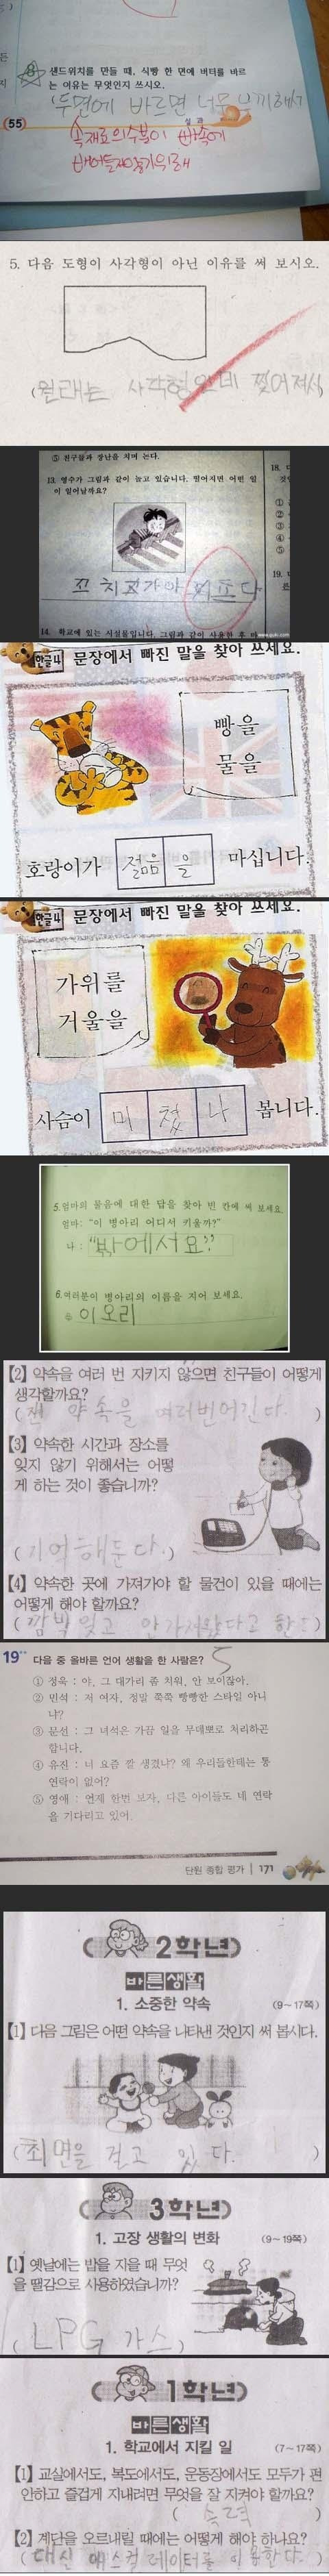 8 샌드위치를 만들 때, 식빵 한 면에 버터를 바르
는 이유는 무엇인지 쓰시오.
(두면에 바르면 너무 부끼해서
55
실과
속재료의 수분이 빵속에
배어들지않기위해
5. 다음 도형이 사각형이 아닌 이유를 써 보시오.
(원래는 사각형인데 찢어져서)
⑤ 친구들과 장난을 치며 논다.
13. 영수가 그림과 같이 놀고 있습니다. 떨어지면 어떤 일
이 일어날까요?
18.
①
②
③
④
⑤
19.
14. 학교에 있는 시설물입니다. 그림과 같이 사용한 후
한글나 문장에서 빠진 말을 찾아 쓰세요.
빵을
물을
호랑이가 젊음을 마십니다.
한글나 문장에서 빠진 말을 찾아 쓰세요.
가위를
거울을
사슴이 미쳤나 봅니다.
5. 엄마의 물음에 대한 답을 찾아 빈 칸에 써 보세요.
엄마: "이 병아리 어디서 키울까?"
나 : "밖에서요?"
6. 여러분이 병아리의 이름을 지어 보세요.
이오리
【2】 약속을 여러 번 지키지 않으면 친구들이 어떻게
생각할까요?
(쟨 약속을 여러번어긴다.)
【3】 약속한 시간과 장소를
잊지 않기 위해서는 어떻
게 하는 것이 좋습니까?
(기억해둔다.)
【4】 약속한 곳에 가져가야 할 물건이 있을 때에는
어떻게 해야 할까요?
(깜박잊고 안가져왔다고 한다)
19 다음 중 올바른 언어 생활을 한 사람은? 5
① 정욱 : 야, 그 대가리 좀 치워, 안 보이잖아.
② 민석 : 저 여자, 정말 쭉쭉 빵빵한 스타일 아니
냐?
③ 문선 : 그 녀석은 가끔 일을 무데뽀로 처리하곤
합니다.
④ 유진 : 너 요즘 깔 생겼냐? 왜 우리들한테는 통
연락이 없어?
⑤ 영애 : 언제 한번 보자, 다른 아이들도 네 연락
을 기다리고 있어.
단원 종합 평가 | 171
2학년
바른생활
1. 소중한 약속 (9~17쪽)
【1】 다음 그림은 어떤 약속을 나타낸 것인지 써 봅시다.
(최면을 걸고 있다.)
3학년
1. 고장 생활의 변화 (9~19쪽)
【1】 옛날에는 밥을 지을 때 무엇
을 땔감으로 사용하였습니까?
(LPG 가스)
1학년
바른생활
1. 학교에서 지킬 일 (7~17쪽)
【1】 교실에서도, 복도에서도, 운동장에서도 모두가 편
안하고 즐겁게 지내려면 무엇을 잘 지켜야 할까요?
(속력)
【2】 계단을 오르내릴 때에는 어떻게 해야 하나요?
(대신 에스컬레이터를 이용한다.)